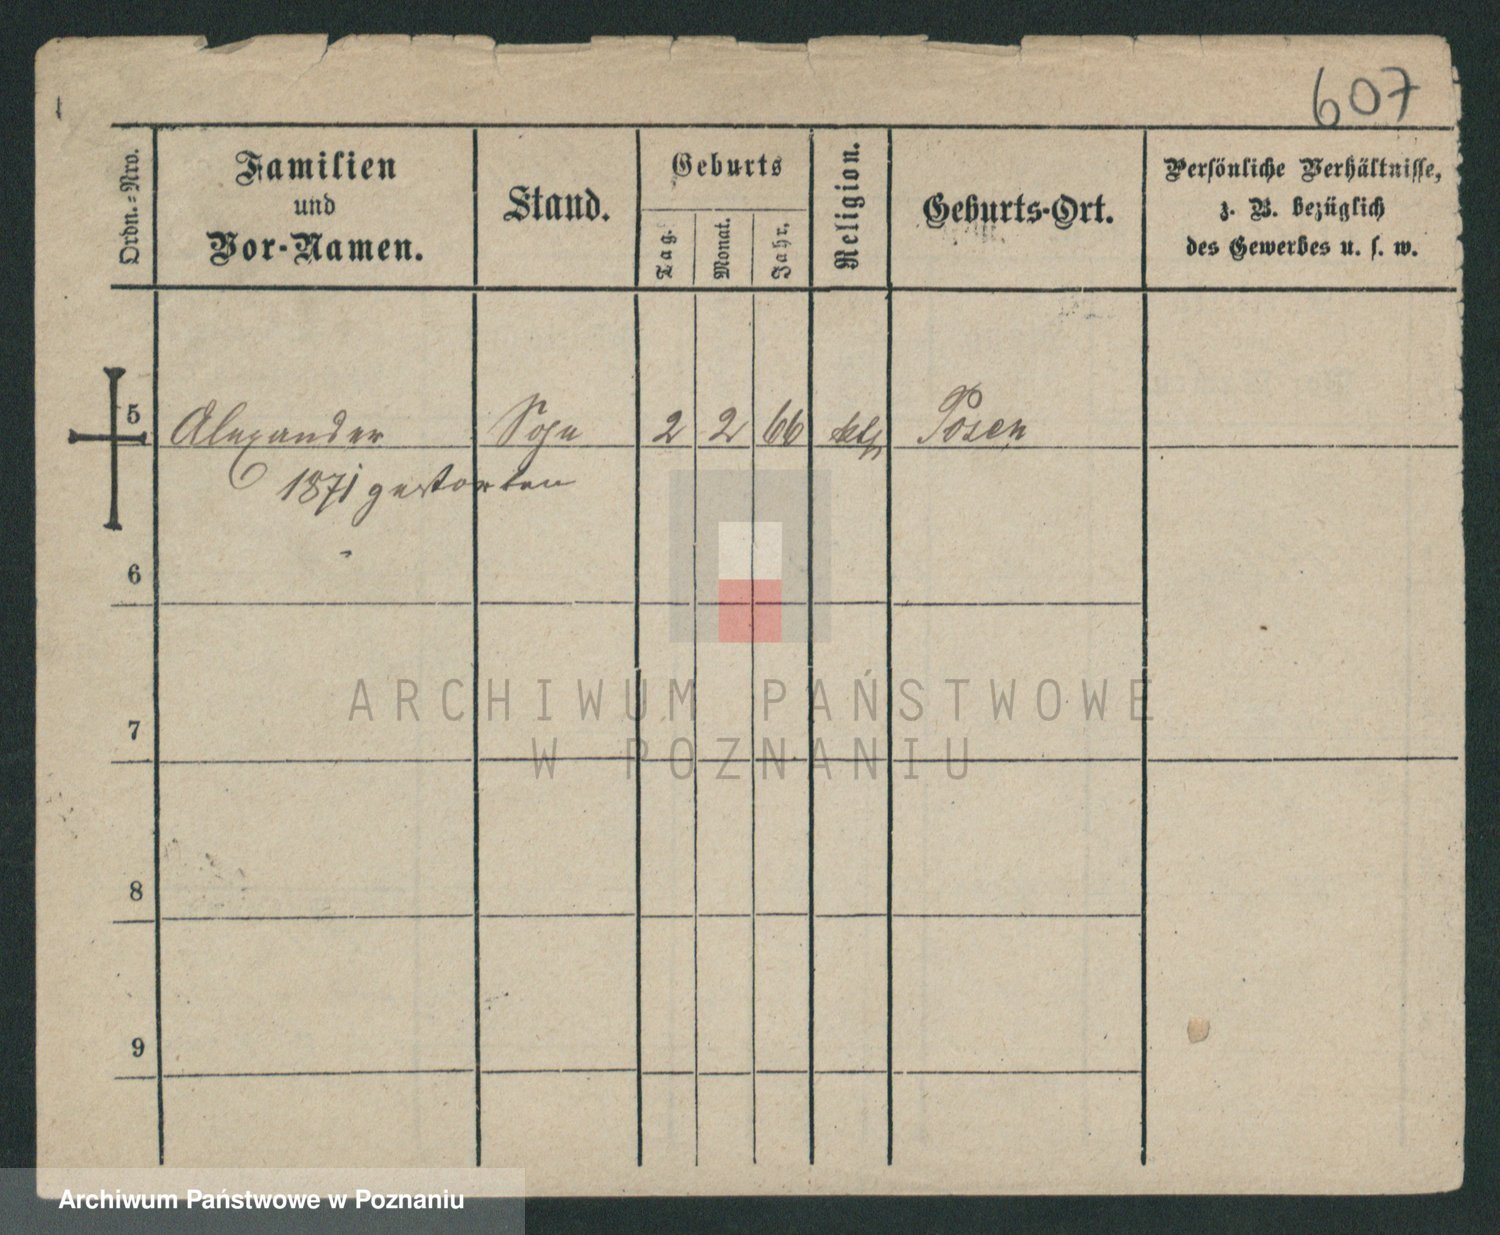 607
Ordn.-Nro.
Familien
und
Vor-Namen.
Stand.
Geburts
Tag.
Monat.
Jahr.
Religion.
Geburts-Ort.
Persönliche Verhältnisse,
z. B. bezüglich
des Gewerbes u. s. w.
5 Alexander Sohn 2 2 66 kth Posen
1871 gestorben
6
7
8
9
ARCHIWUM PAŃSTWOWE
W POZNANIU
Archiwum Państwowe w Poznaniu